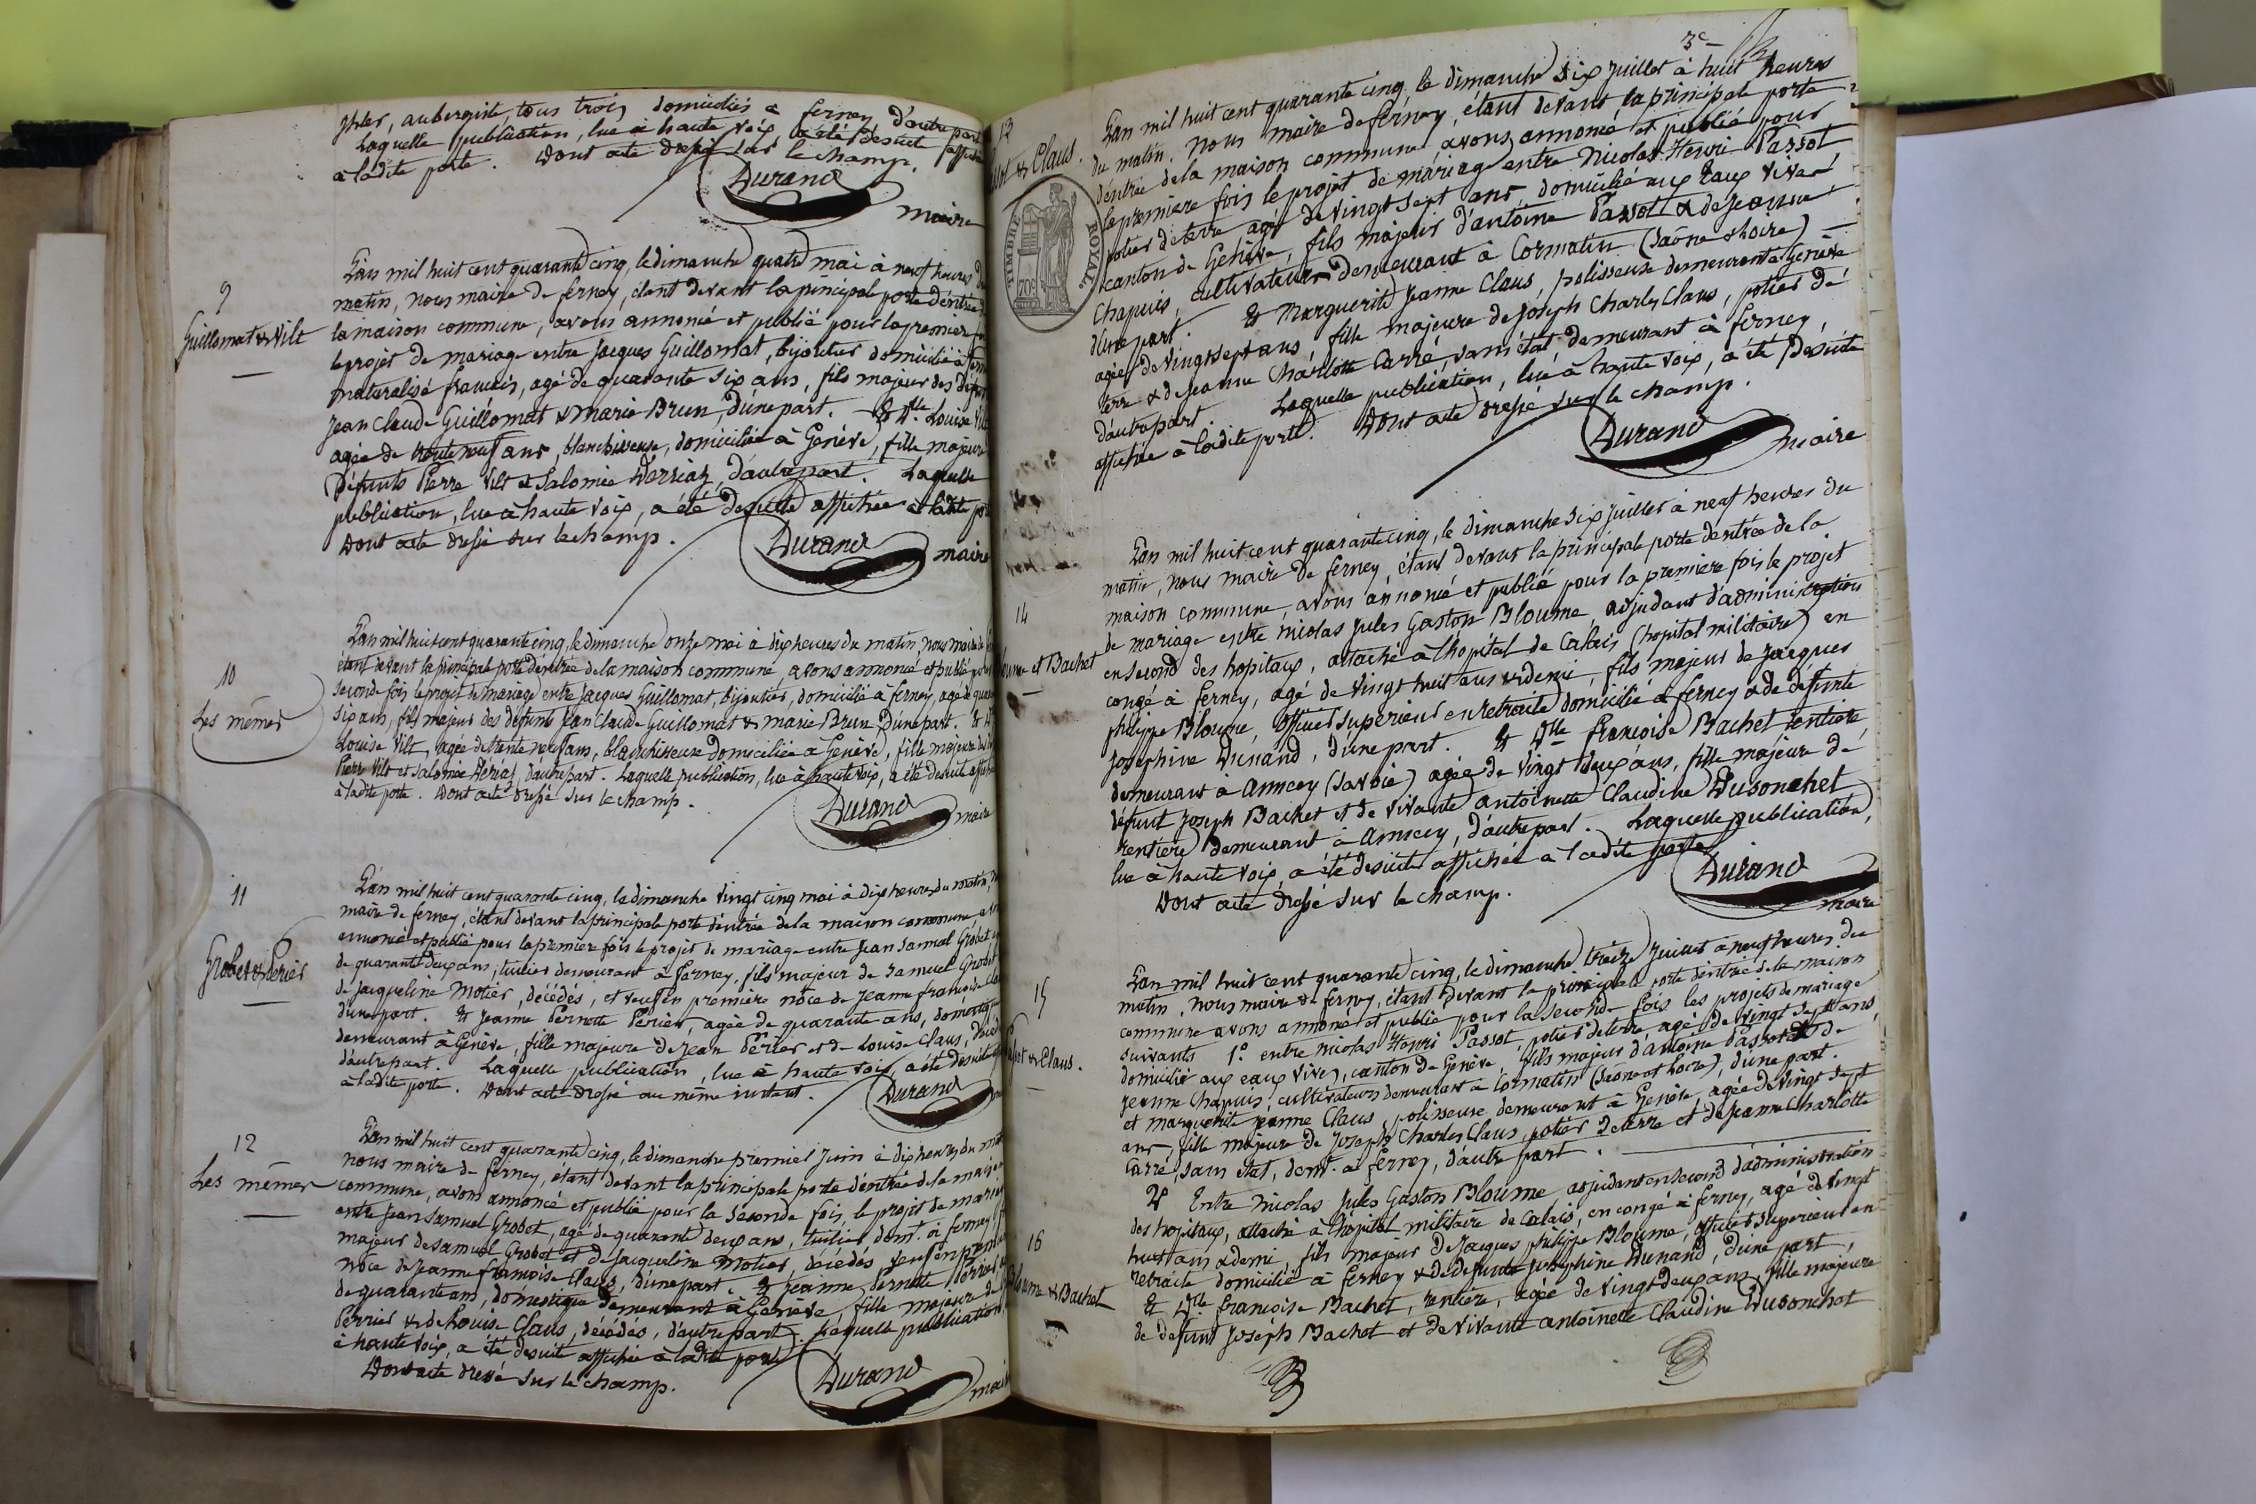 aubergiste, tous trois domiciliés à ferney d'autre part
Laquelle publication, lue à haute voix, a été desuite affichée
à ladite porte. Dont acte dressé sur le champ.
Durand
maire
9
Guillomat & Vilt
L'an mil huit cent quarante cinq, le dimanche quatre mai à neuf heures du
matin, nous maire de ferney, étant devant la principale porte d'entrée de
la maison commune, avons annoncé et publié pour la premiere
le projet de mariage entre Jacques Guillomat, bijoutier domicilié à
naturalisé français, agé de quarante six ans, fils majeur des
Jean Claude Guillomat & marie Brun, d'une part. Et Dlle Louise
agée de trente neuf ans, blanchisseuse, domiciliée à Genève, fille majeure
défunts Pierre Vilt et Salomée d'autre part. Laquelle
publication, lue à haute voix, a été desuite affichée à ladite
Dont acte dressé sur le champ.
Durand
maire
10
Les mêmes
L'an mil huit cent quarante cinq, le dimanche onze mai à dix heures du matin, nous maire de
étant devant la principale porte d'entrée de la maison commune, avons annoncé et publié
seconde fois le projet de mariage entre Jacques Guillomat, bijoutier, domicilié à ferney, agé de
six ans, fils majeur des défunts Jean Claude Guillomat & marie Brun d'une part. Et
Louise Vilt, agée de trente neuf ans, blanchisseuse domiciliée à Genève, fille majeure
Pierre Vilt et Salomée d'autre part. Laquelle publication, lue à haute voix, a été desuite
à ladite porte. Dont acte dressé sur le champ.
Durand
maire
11
Grobet & Perier
L'an mil huit cent quarante cinq, le dimanche vingt cinq mai à dix heures du matin,
maire de ferney, étant devant la principale porte d'entrée de la maison commune,
annoncé et publié pour la premier fois le projet de mariage entre Jean Samuel Grobet
de quarante deux ans, tuilier demeurant à ferney, fils majeur de Samuel Grobet
de Jacqueline Motier, décédés, et veuf en première nôce de Jeanne francoise
d'une part. Et Jeanne Pernette Perier, agée de quarante ans, domestique
demeurant à Genève, fille majeure de Jean Perier et de Louise Claus,
d'autre part. Laquelle publication, lue à haute voix, a été desuite
à ladite porte. Dont acte dressé au même instant.
Durand
12
Les mêmes
L'an mil huit cent quarante cinq, le dimanche premier Juin à dix heures du
nous maire de ferney, étant devant la principale porte d'entrée de la maison
commune, avons annoncé et publié pour la seconde fois le projet de
entre Jean Samuel Grobet, agé de quarante deux ans, tuilier demt. à ferney,
majeur de Samuel Grobet et de Jacqueline Motier, décédés, veuf en
nôce de Jeanne francoise Claus, d'une part. Et Jeanne Pernette Perrier,
de quarante ans, domestique demeurant à Genève, fille majeure de
Perrier & de Louise Claus, décédés, d'autre part. Laquelle publication
à haute voix, a été desuite affichée à ladite porte.
Dont acte dressé sur le champ.
Durand
maire
3e
13
& Claus.
TIMBRE ROYAL
70c
L'an mil huit cent quarante cinq, le dimanche six Juillet à huit heures
du matin. Nous maire de ferney, étant devant la principale porte
d'entrée de la maison commune, avons annoncé et publié pour
la premiere fois le projet de mariage entre Nicolas Henri Passot
potier de terre agé de vingt sept ans, domicilié aux Eaux vives
canton de Genève, fils majeur d'antoine Passot & de Jeanne
Chapuis, cultivateurs demeurant à Cormatin (Saône & Loire)
d'une part. Et Marguerite Jeanne Claus, polisseuse demeurant à Genève
agée de vingt sept ans fille majeure de Joseph Charles Claus, potier de
terre & de Jeanne Charlotte Carré, sans état demeurant à ferney,
d'autre part. Laquelle publication, lue à haute voix, a été desuite
affichée à ladite porte. Dont acte dressé sur le champ.
Durand
maire
14
et Bachet
L'an mil huit cent quarante cinq, le dimanche six Juillet à neuf heures du
matin, nous maire de ferney, étant devant la principale porte d'entrée de la
maison commune, avons annoncé et publié pour la premiere fois le projet
de mariage entre Nicolas Jules Gaston Bloume, adjudant d'administration
en second des hopitaux, attaché à l'hôpital de Calais (hopital militaire) en
congé à ferney, agé de vingt huit ans & demi, fils majeur de Jacques
philippe Bloume, officier supérieur en retraite domicilié à ferney & de défunte
Josephine Dunand, d'une part. Et Dlle francoise Bachet rentière
demeurant à Annecy (Savoie) agée de vingt deux ans, fille majeure de
défunt Joseph Bachet et de vivante antoinette Claudine Dusonchet
rentière demeurant à Annecy, d'autre part. Laquelle publication,
lue à haute voix, a été desuite affichée à ladite porte
Dont acte dressé sur le champ.
Durand
maire
15
& Claus.
L'an mil huit cent quarante cinq, le dimanche treize Juillet à neuf heures du
matin. Nous maire de ferney, étant devant la principale porte d'entrée de la maison
commune avons annoncé et publié pour la seconde fois les projets de mariage
suivants 1o. entre Nicolas Henri Passot, potier de terre agé de vingt sept ans
domicilié aux eaux vives, canton de Genève, fils majeur d'antoine Passot & de
Jeanne Chapuis, cultivateurs demeurant à Cormatin (Saône et Loire), d'une part.
et marguerite jeanne Claus, polisseuse demeurant à Genève, agée de vingt sept
ans fille majeure de Joseph Charles Claus, potier de terre et de Jeanne Charlotte
Carré, sans état, demt. à ferney, d'autre part.
16
& Bachet
2o Entre Nicolas Jules Gaston Bloume, adjudant en second d'administration
des hopitaux, attaché à l'hôpital militaire de Calais, en congé à ferney, agé de vingt
huit ans & demi, fils majeur de Jacques philippe Bloume, officier supérieur en
retraite domicilié à ferney & de défunte Josephine Dunand, d'une part,
Et Dlle francoise Bachet, rentière, agée de vingt deux ans, fille majeure
de défunt Joseph Bachet et de vivante antoinette Claudine Dusonchet